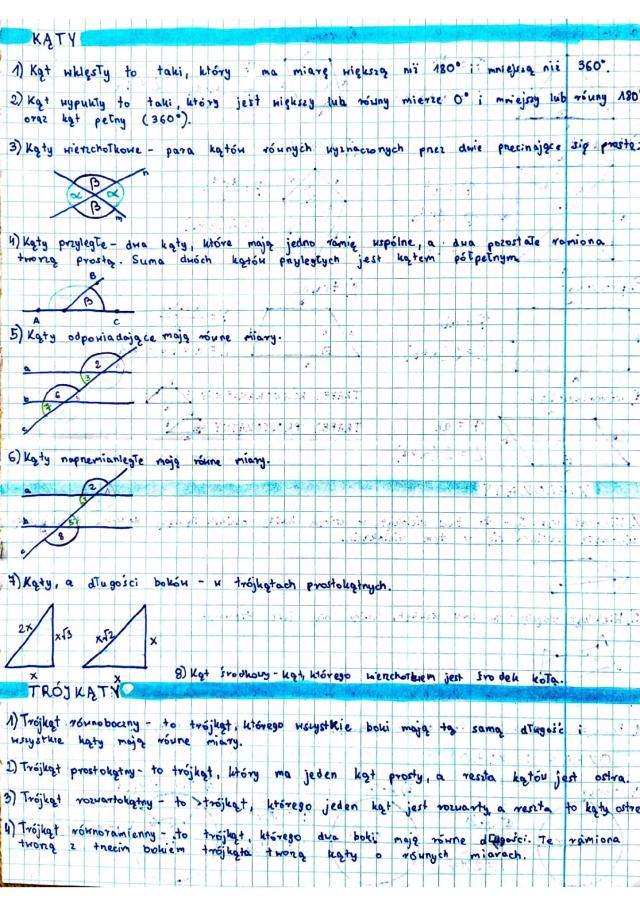 KĄTY
1) Kąt wklęsły to taki, który ma miarę większą niż 180° i mniejszą niż 360°.
2) Kąt wypukły to taki, który jest większy lub równy mierze 0° i mniejszy lub równy 180
oraz kąt pełny (360°).
3) Kąty wierzchołkowe - para kątów równych wyznaczonych przez dwie przecinające się proste.
n
β
α α
β
m
4) Kąty przyległe - dwa kąty, które mają jedno ramię wspólne, a dwa pozostałe ramiona
tworzą prostą. Suma dwóch kątów przyległych jest kątem półpełnym
B
β
A C
5) Kąty odpowiadające mają równe miary.
2
a 3
6
b 7
c
6) Kąty naprzemianległe mają równe miary.
2
a
b 5
8
c
7) Kąty, a długości boków - w trójkątach prostokątnych.
2x x√3 x√2 x
x x
8) Kąt środkowy - kąt, którego wierzchołkiem jest środek koła.
TRÓJKĄTY
1) Trójkąt równoboczny - to trójkąt, którego wszystkie boki mają tą samą długość i
wszystkie kąty mają równe miary.
2) Trójkąt prostokątny - to trójkąt, który ma jeden kąt prosty, a reszta kątów jest ostra.
3) Trójkąt rozwartokątny - to trójkąt, którego jeden kąt jest rozwarty, a reszta to kąty ostre
4) Trójkąt równoramienny - to trójkąt, którego dwa boki mają równe długości. Te ramiona
tworzą z trzecim bokiem trójkąta tworzą kąty o równych miarach.